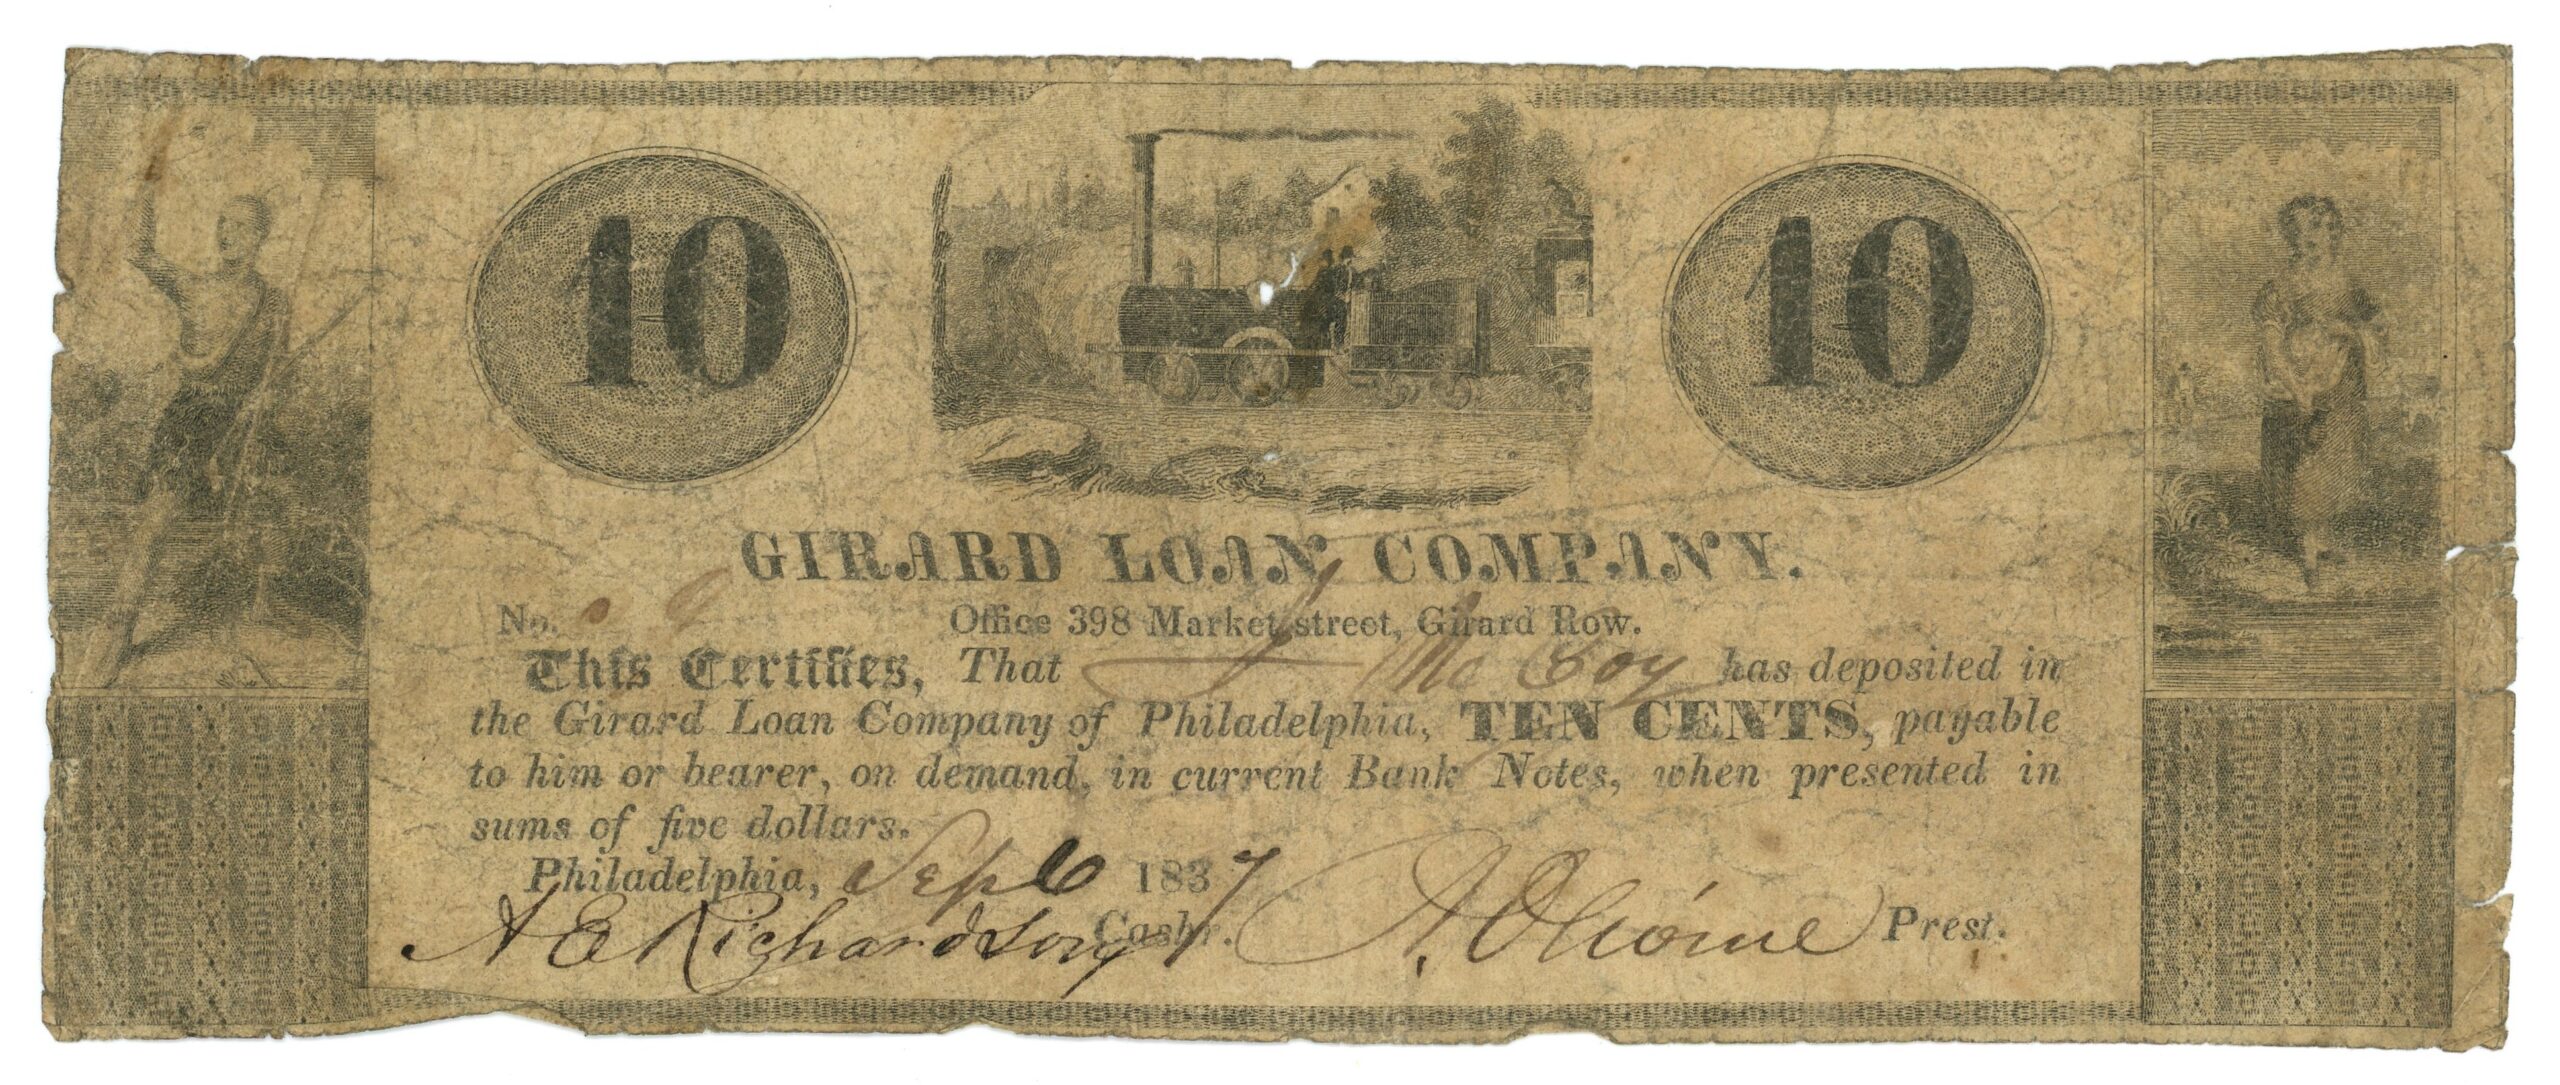 10 10
GIRARD LOAN COMPANY.
No. Office 398 Market street, Girard Row.
This Certifies, That Mc Coy has deposited in
the Girard Loan Company of Philadelphia, TEN CENTS, payable
to him or bearer, on demand, in current Bank Notes, when presented in
sums of five dollars.
Philadelphia, Sep 6 1837
A E Richardson Cashr. Prest.